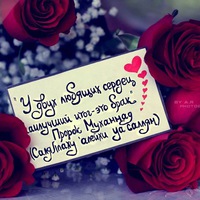 "У двух любящих сердец
наилучший итог-это брак."
Пророк Мухаммад
(Саллллаху 'алейхи уа саллям)